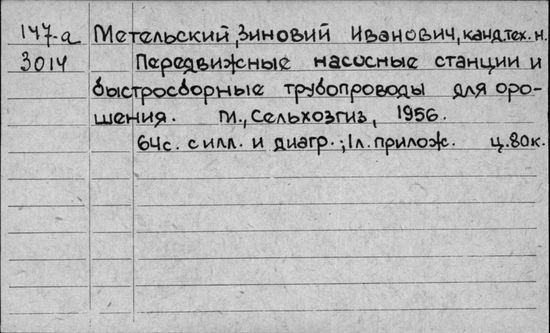 147-а Метельский, Зиновий Иванович, канд. тех. н.
3014 Передвижные насосные станции и
быстросборные трубопроводы для оро-
шения. М., Сельхозгиз, 1956.
64с. с илл. и диагр.; 1л. прилож. ц. 80к.